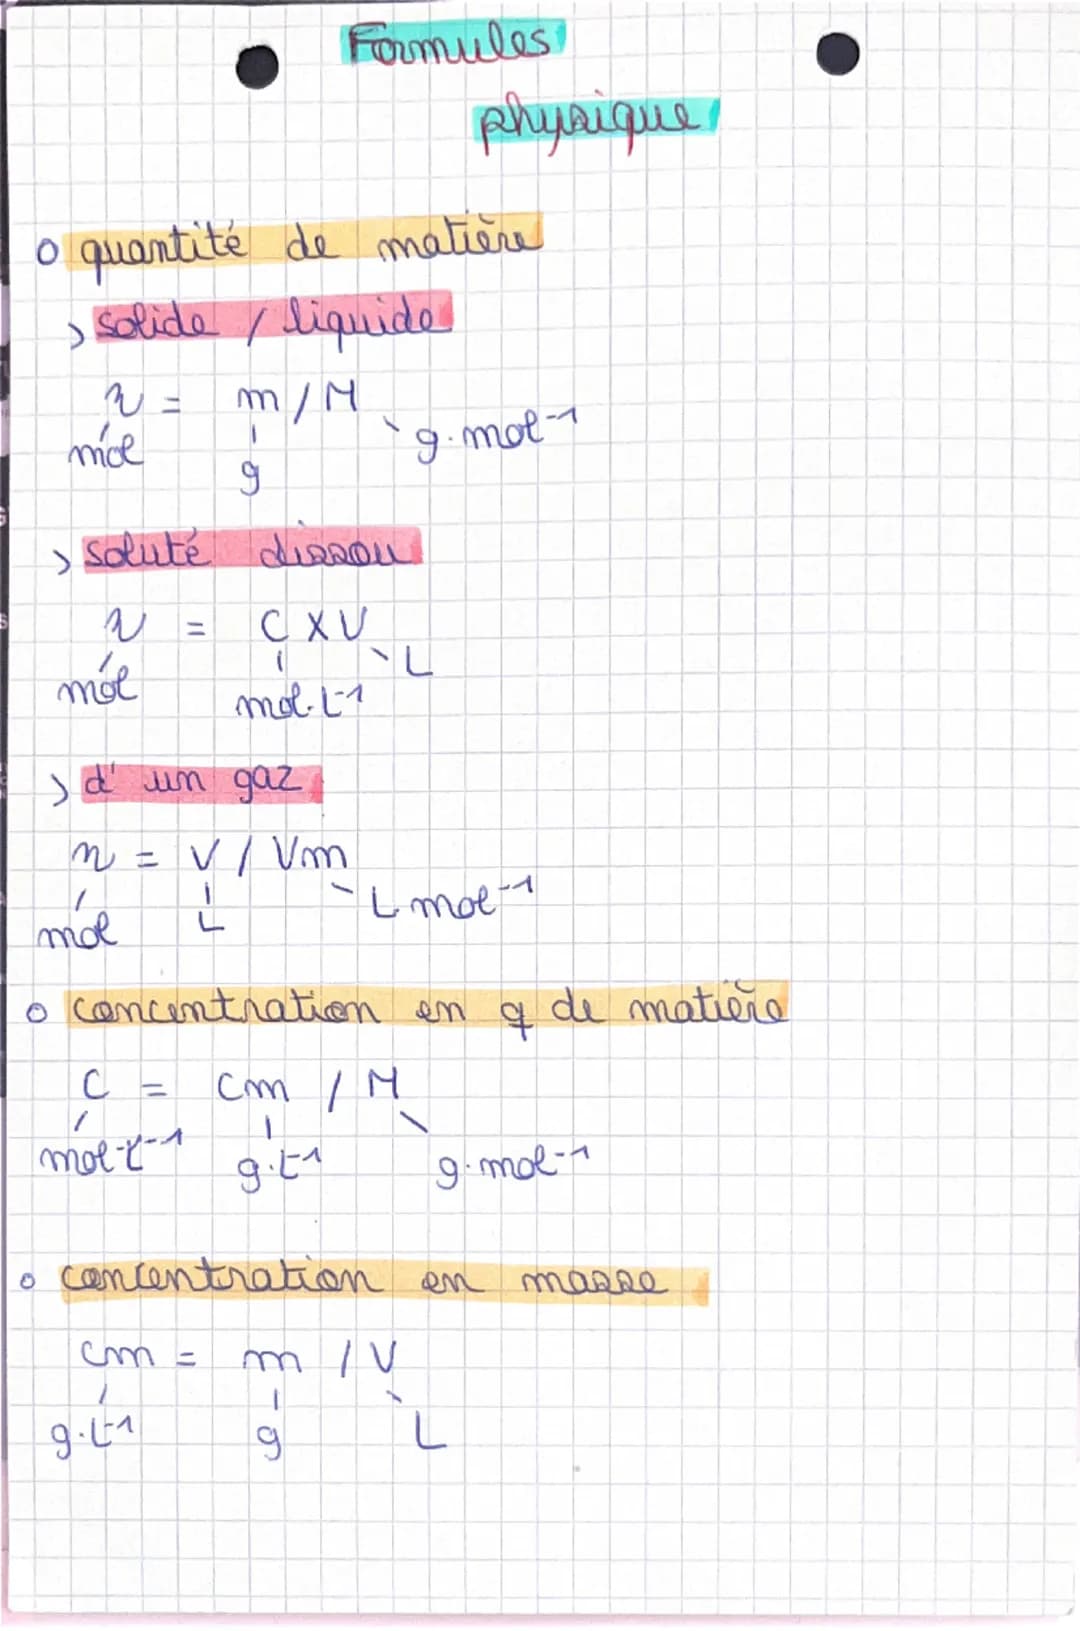 Formules
physique
o quantité de matière
> solide / liquide
n = m / M
mol g g.mol-1
> soluté dissou
n = C x V
mol mol.L-1 L
> d'un gaz
n = V / Vm
mol L L.mol-1
o concentration en q de matière
C = Cm / M
mol.L-1 g.L-1 g.mol-1
o concentration en masse
Cm = m / V
g.L-1 g L